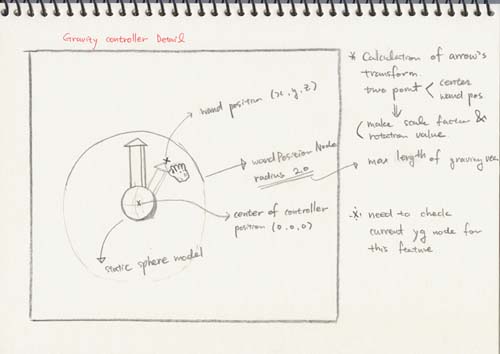 Gravity controller Detail
wand position (x, y, z)
wandPosition Node
radius 2.0
center of controller
position (0.0.0)
static sphere model
* Calculation of arrow's
transform.
two point < center
wand pos
make scale factor &
rotation value
max length of graving vec
need to check
current yg node for
this feature